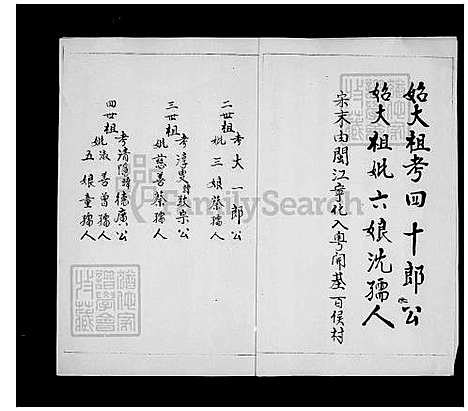 始大祖考四十郎公
始大祖妣六娘沈孺人
宋末由閩江寧化入粵開基百侯村
二世祖考大一郎公
妣三娘蔡孺人
三世祖考淳叟諱致宗公
妣慈善蔡孺人
四世祖考清隱諱德廣公
妣淑善曾孺人
五娘童孺人
FamilySearch